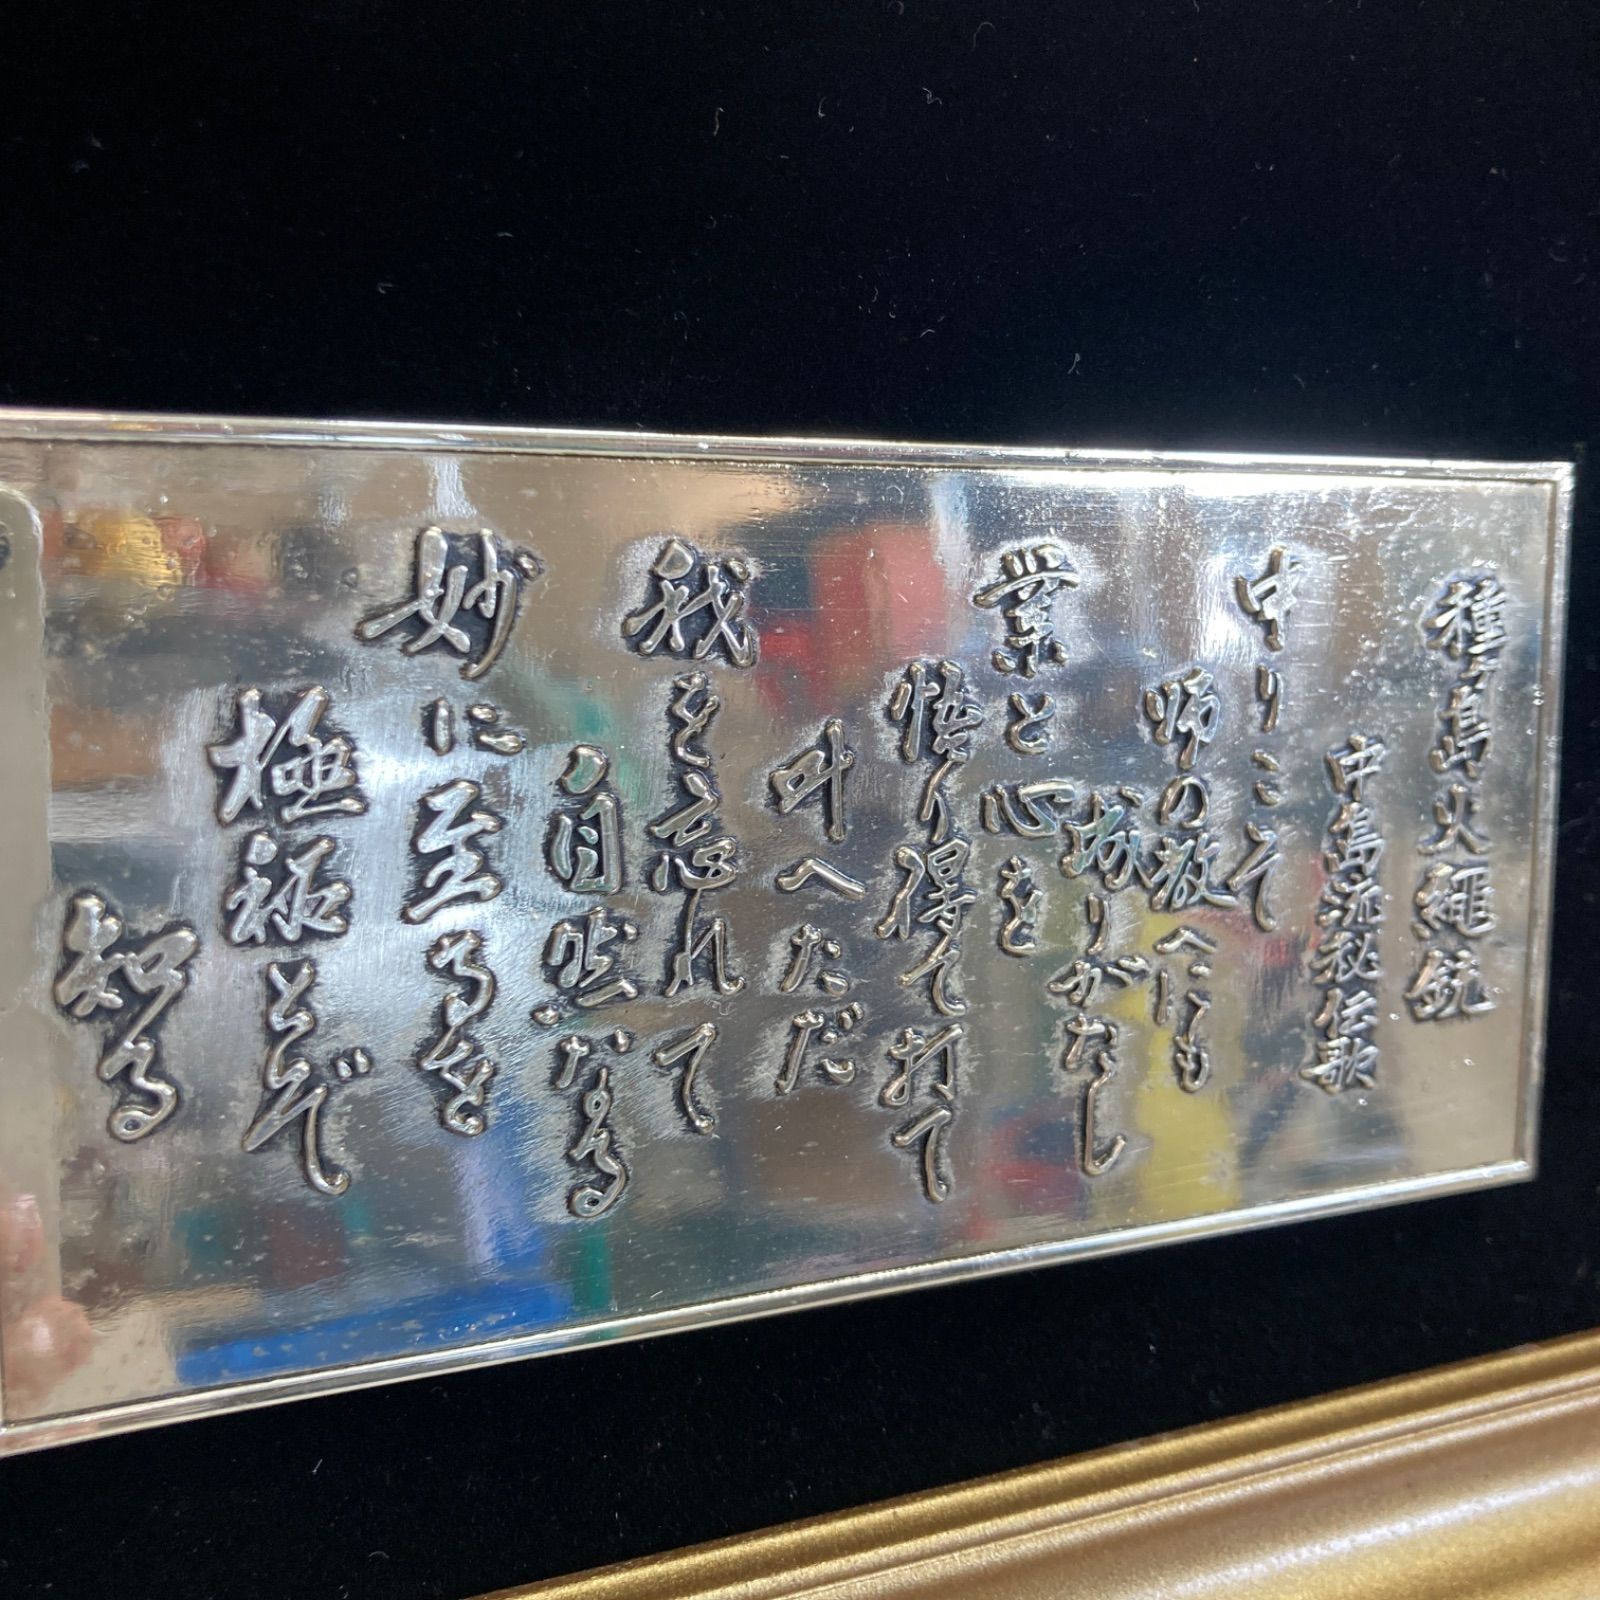 種子島火縄銃
中島流秘伝歌
中りこそ
師の教へにも
業と心を
成りがたし
悟り得て打て
叶へただ
我を忘れて
自然なる
妙に至るを
極秘とぞ
知る